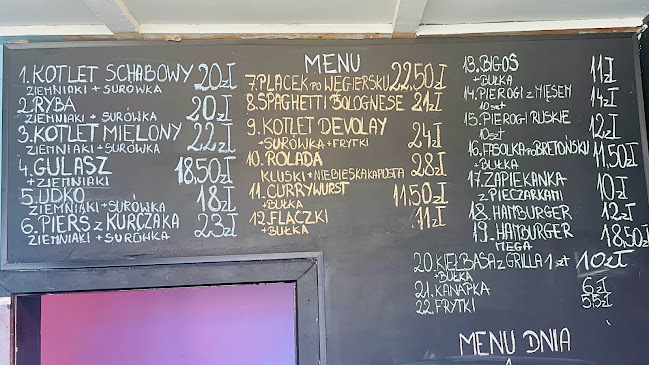 MENU
1. KOTLET SCHABOWY 20zł
ZIEMNIAKI + SURÓWKA
2. RYBA 20zł
ZIEMNIAKI + SURÓWKA
3. KOTLET MIELONY 22zł
ZIEMNIAKI + SURÓWKA
4. GULASZ 18,50zł
+ ZIEMNIAKI
5. UDKO 18zł
ZIEMNIAKI + SURÓWKA
6. PIERŚ Z KURCZAKA 23zł
ZIEMNIAKI + SURÓWKA
7. PLACEK PO WĘGIERSKU 22,50zł
8. SPAGHETTI BOLOGNESE 21zł
9. KOTLET DEVOLAY 24zł
+ SURÓWKA + FRYTKI
10. ROLADA 28zł
KLUSKI + NIEBIESKA KAPUSTA
11. CURRYWURST 11,50zł
+ BUŁKA
12. FLACZKI 11zł
+ BUŁKA
13. BIGOS 11zł
+ BUŁKA
14. PIEROGI Z MIĘSEM 14zł
10szt
15. PIEROGI RUSKIE 12zł
10szt
16. FASOLKA PO BRETOŃSKU 11,50zł
+ BUŁKA
17. ZAPIEKANKA 10zł
Z PIECZARKAMI
18. HAMBURGER 12zł
19. HAMBURGER 18,50zł
MEGA
20. KIEŁBASA Z GRILLA 1szt 10zł
+ BUŁKA
21. KANAPKA 6zł
22. FRYTKI 5,5zł
MENU DNIA